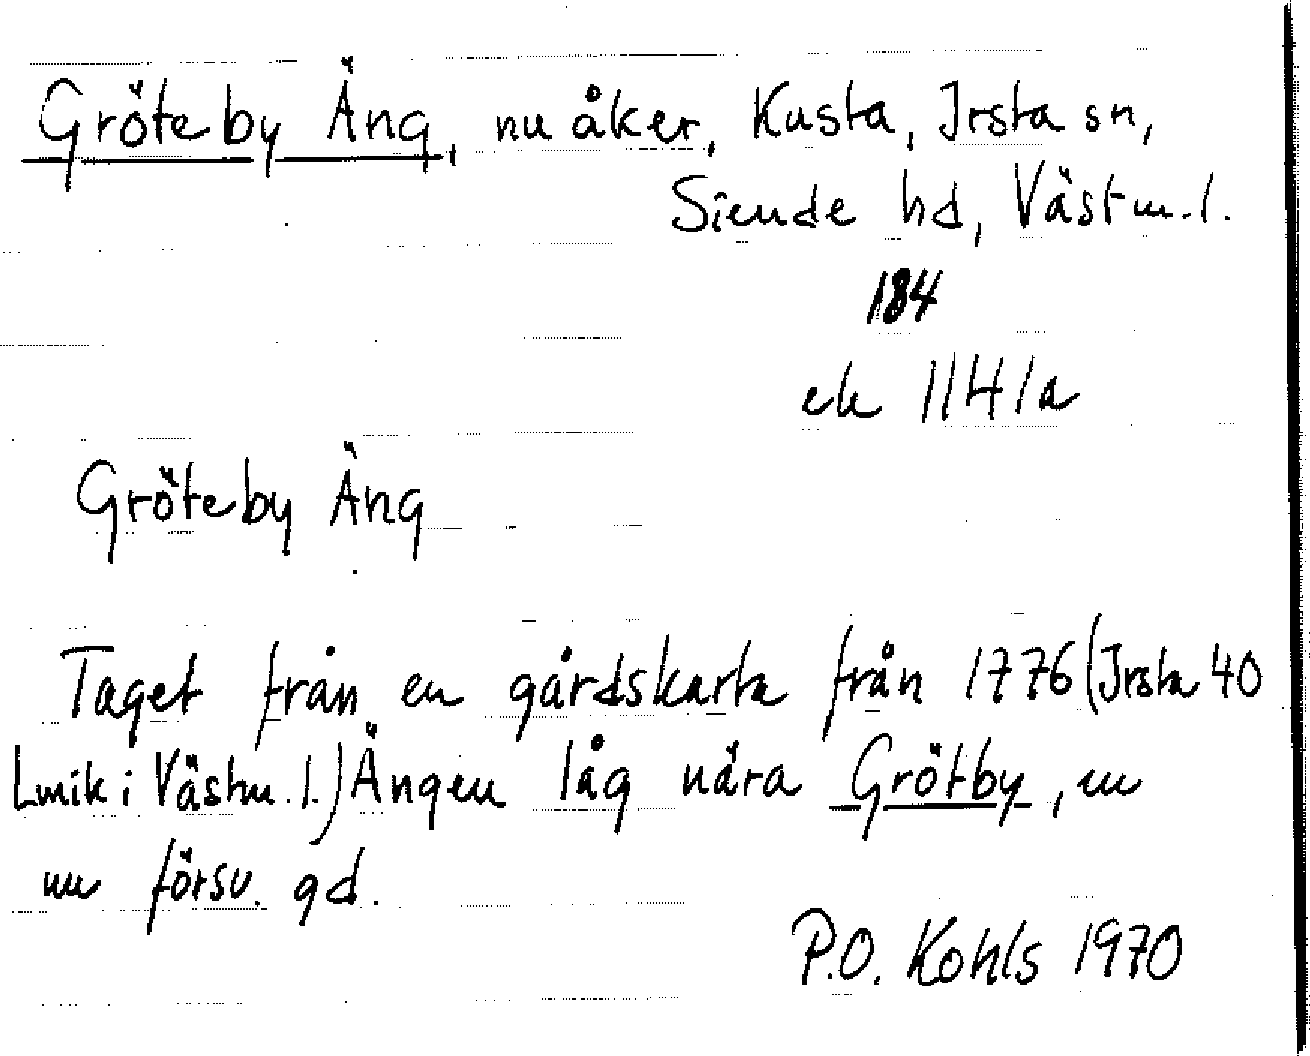 Gröteby Äng, nu åker, Kusta, Irsta sn,
Siende hd, Västm. l.
184
ek 11H1a
Gröteby Äng
Taget från en gårdskarta från 1776 (Irsta 40
Lmik i Västm. l.) Ängen låg nära Grötby, en
nu försv. gd.
P.O. Kohls 1970